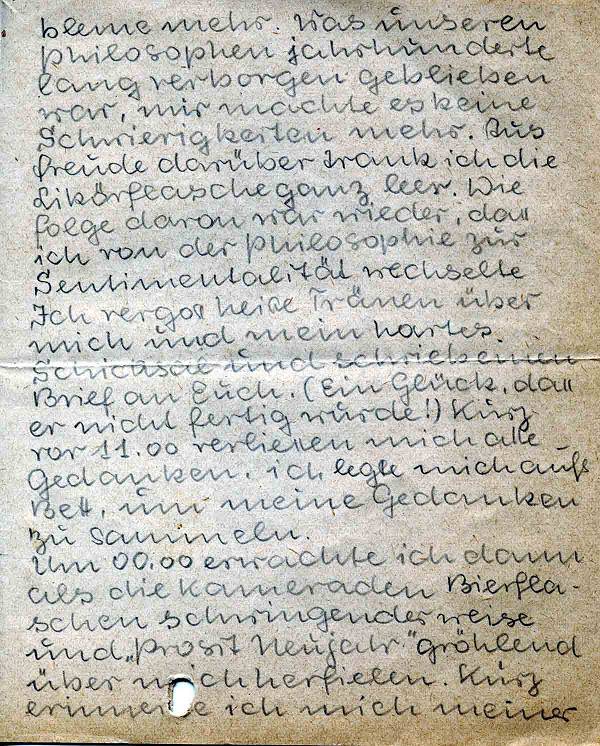 bleme mehr. Was unseren
Philosophen jahrhunderte
lang verborgen geblieben
war, mir machte es keine
Schwierigkeiten mehr. Aus
freude darüber trank ich die
Likörflasche ganz leer. Die
folge davon war wieder, daß
ich von der Philosophie zur
Sentimentalität wechselte
Ich vergoß heiße Tränen über
mich und mein hartes
Schicksal und schrieb einen
Brief an Euch. (Ein Glück, daß
er nicht fertig wurde!) Kurz
vor 11.00 verließen mich alle
Gedanken. ich legte mich aufs
Bett, um meine Gedanken
zu sammeln.
Um 00.00 erwachte ich dann
als die Kameraden Bierfla-
schen schwingenderweise
und „Prosit Neujahr" gröhlend
über mich herfielen. Kurz
erinnerte ich mich meiner